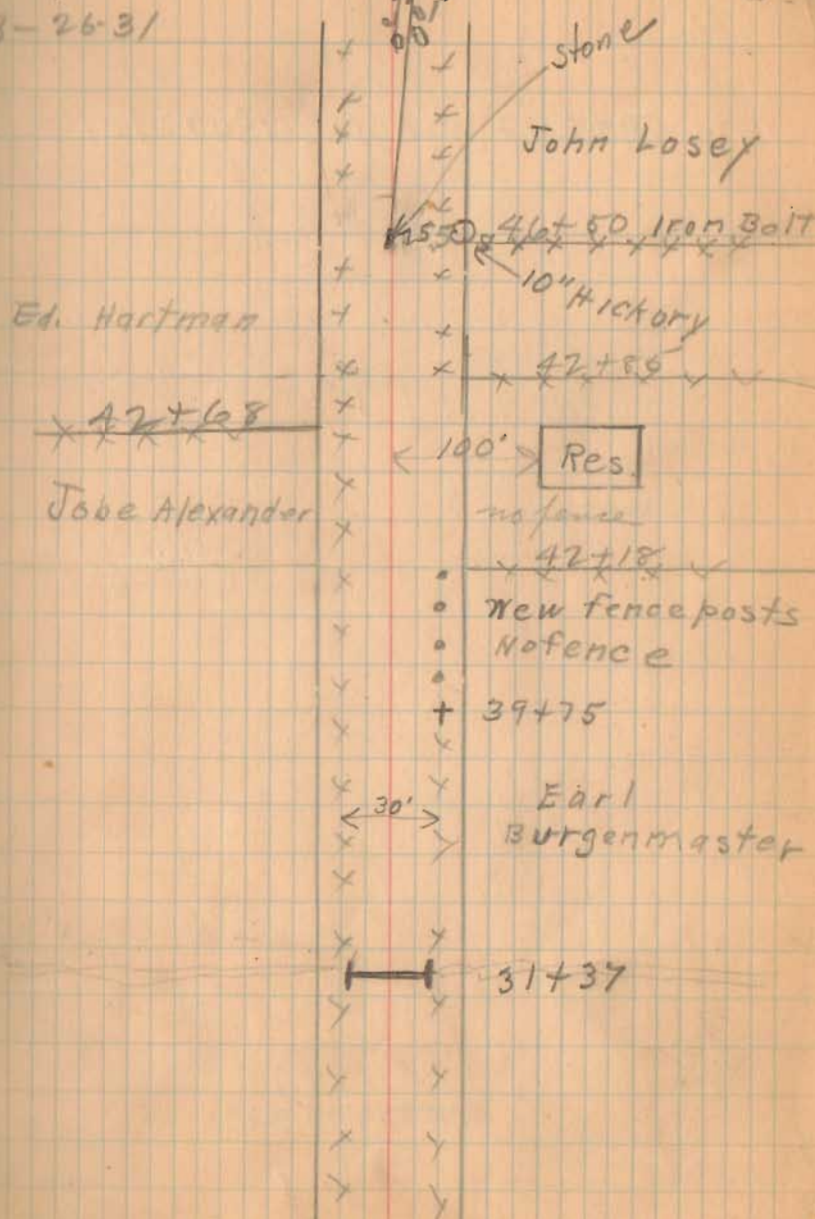 - 26-31
Stone
John Losey
46+50 Iron Bolt
10" Hickory
Ed. Hartman
42+85
42+68
100'
Res.
Jobe Alexander
no fence
42+18
New fence posts
No fence
39+75
30'
Earl
Burgenmaster
31+37